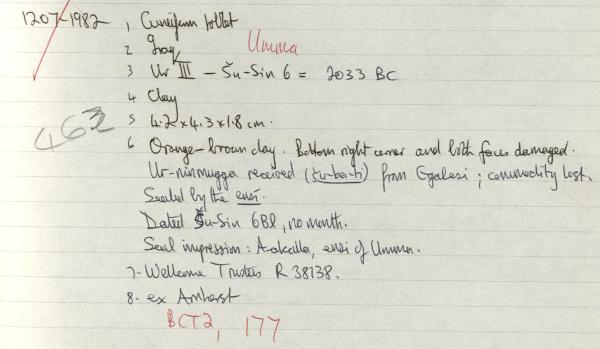 1207-1982 , 1 Cuneiform tablet
2 Iraq Umma
3 Ur III – Šu-Sin 6 = 2033 BC
4 Clay
463
5 4.2 x 4.3 x 1.8 cm.
6 Orange-brown clay. Bottom right corner and both faces damaged.
Ur-ninmugga received (šu-ba-ti) from Egalesi ; commodity lost.
Sealed by the ensi.
Dated Šu-Sin 6, no month.
Seal impression : A-akalla, ensi of Umma.
7- Wellcome Trustees R 38138.
8- ex Amherst
BCT2, 177